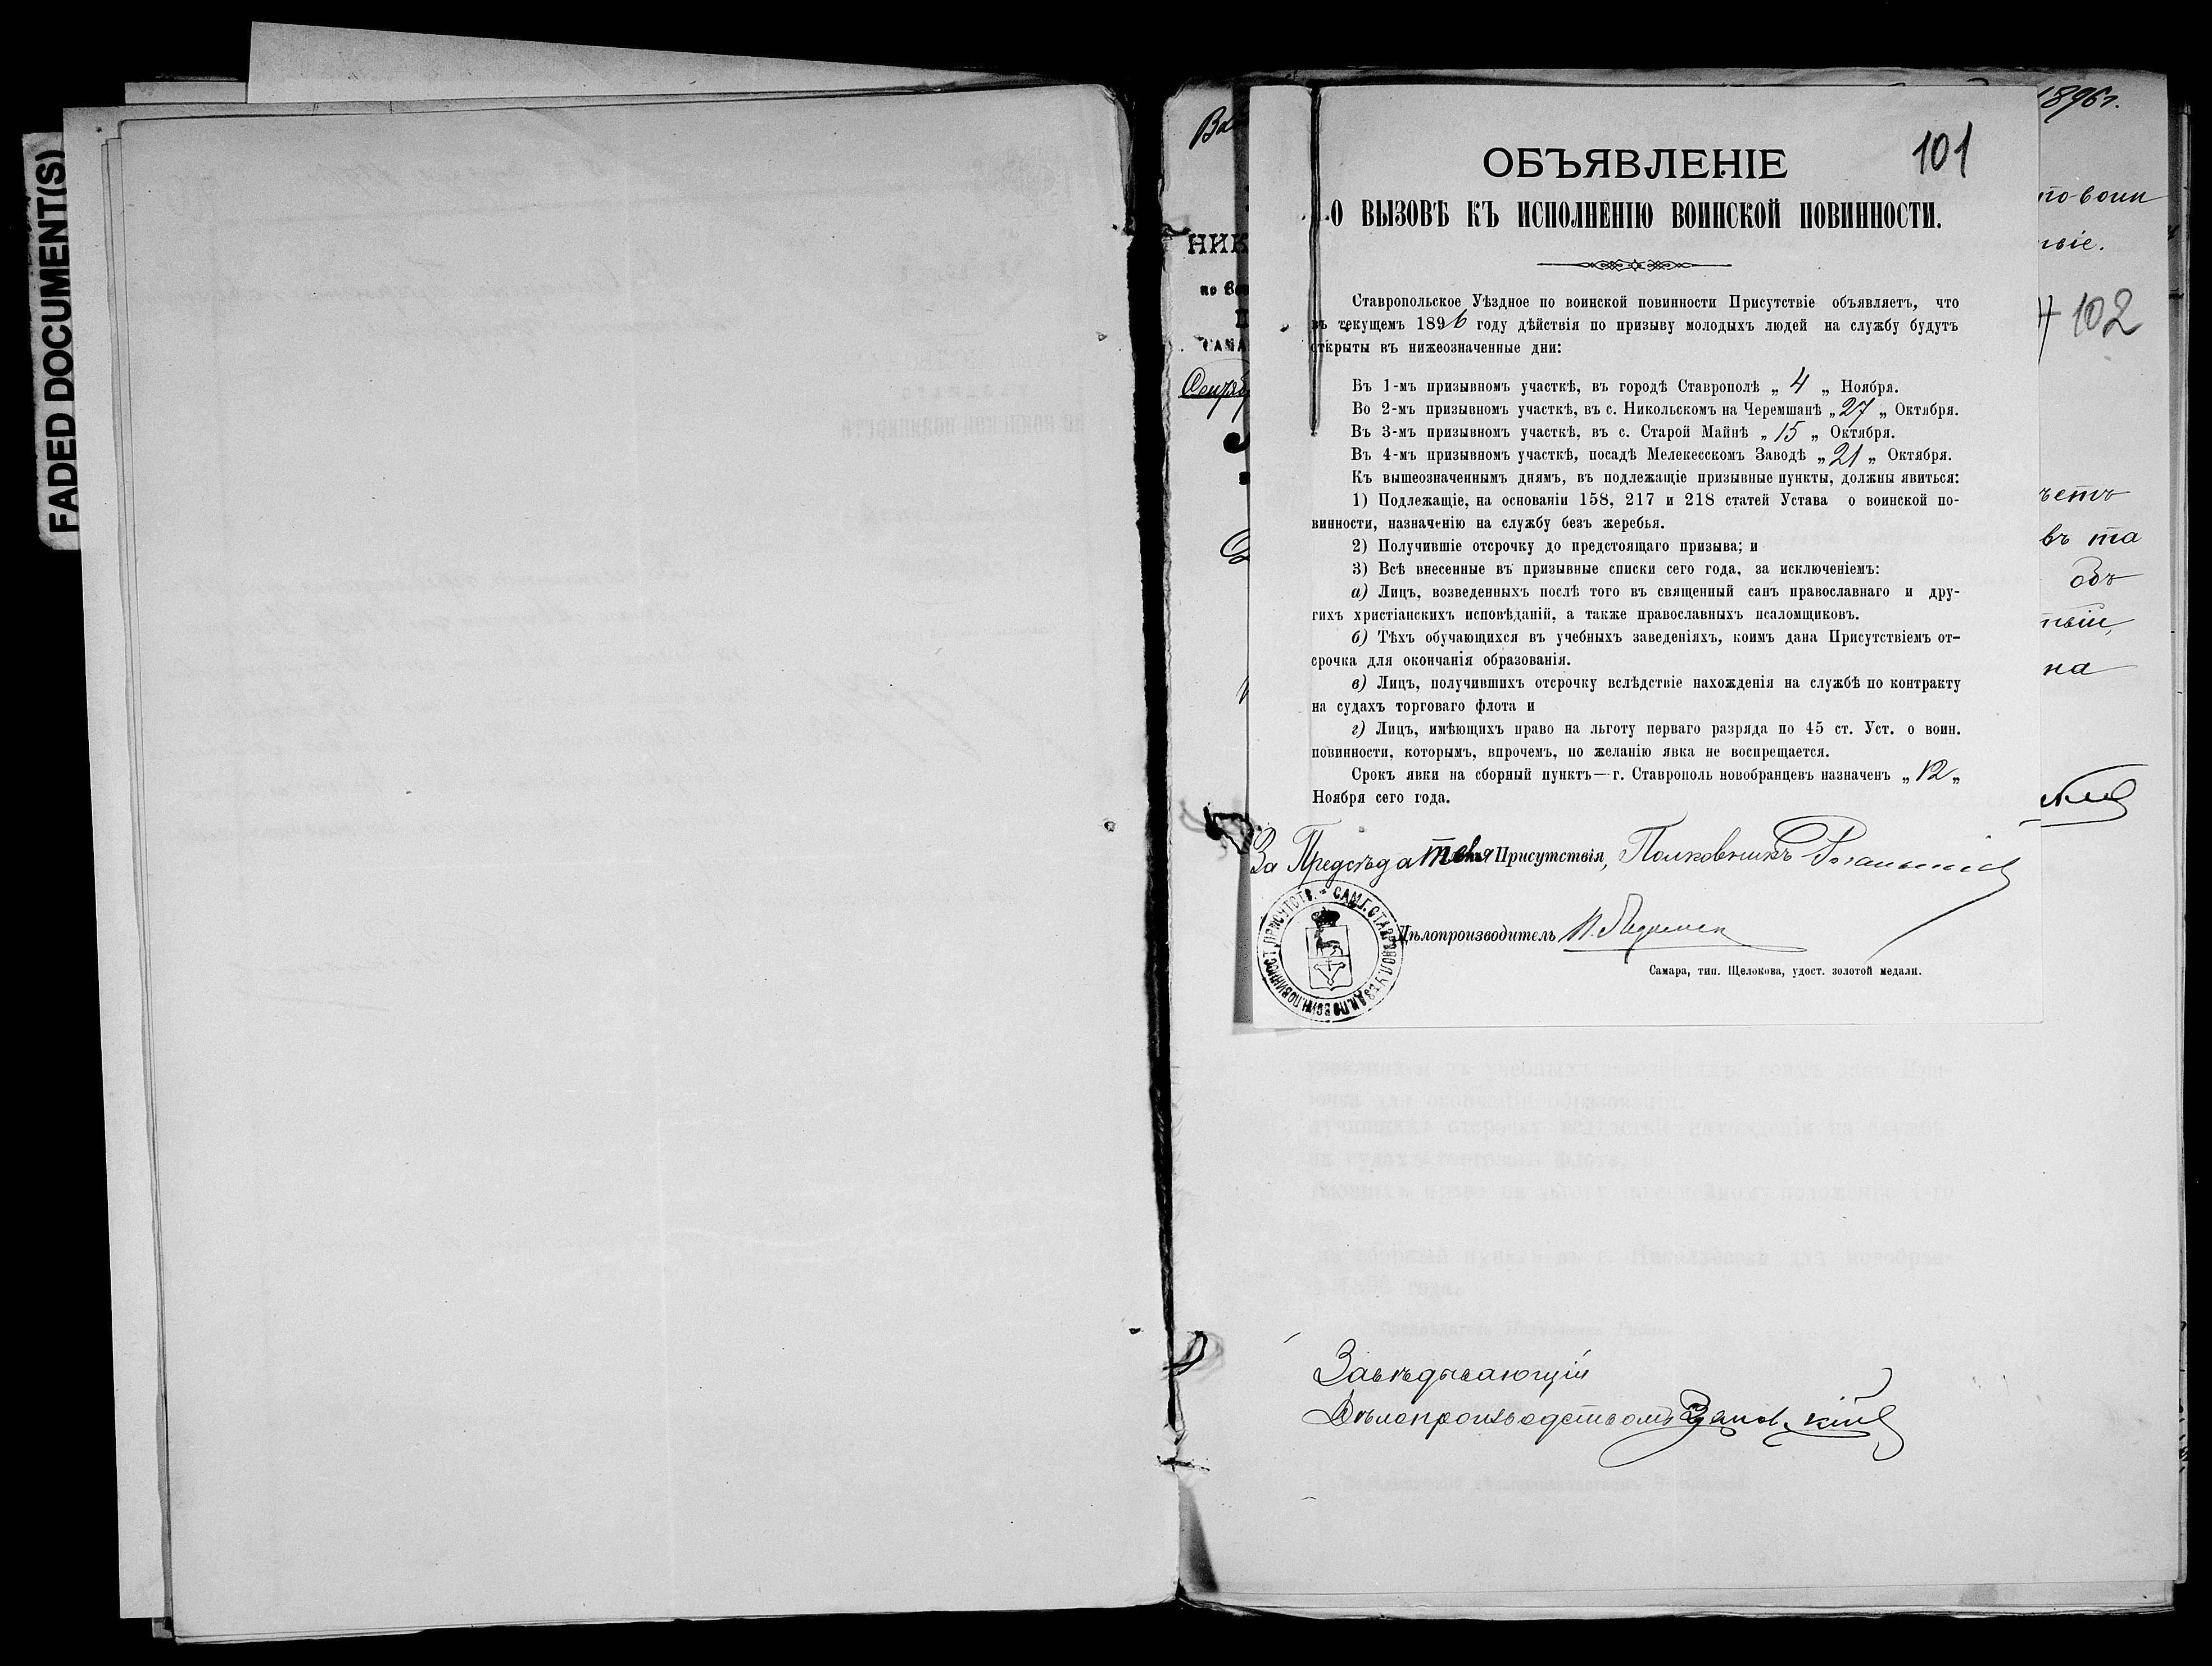 FADED DOCUMENT(S)
1896г.
101
ОБЪЯВЛЕНІЕ
О ВЫЗОВѢ КЪ ИСПОЛНЕНІЮ ВОИНСКОЙ ПОВИННОСТИ.
Ставропольское Уѣздное по воинской повинности Присутствіе объявляетъ, что
въ текущемъ 1896 году дѣйствія по призыву молодыхъ людей на службу будутъ
открыты въ нижеозначенные дни:
Въ 1-мъ призывномъ участкѣ, въ городѣ Ставрополѣ „ 4 „ Ноября.
Во 2-мъ призывномъ участкѣ, въ с. Никольскомъ на Черемшанѣ „ 27 „ Октября.
Въ 3-мъ призывномъ участкѣ, въ с. Старой Майнѣ „ 15 „ Октября.
Въ 4-мъ призывномъ участкѣ, посадѣ Мелекесскомъ Заводѣ „ 21 „ Октября.
Къ вышеозначеннымъ днямъ, въ подлежащіе призывные пункты, должны явиться:
1) Подлежащіе, на основаніи 158, 217 и 218 статей Устава о воинской по-
винности, назначенію на службу безъ жеребья.
2) Получившіе отсрочку до предстоящаго призыва; и
3) Всѣ внесенные въ призывные списки сего года, за исключеніемъ:
а) Лицъ, возведенныхъ послѣ того въ священный санъ православнаго и дру-
гихъ христіанскихъ исповѣданій, а также православныхъ псаломщиковъ.
б) Тѣхъ обучающихся въ учебныхъ заведеніяхъ, коимъ дана Присутствіемъ от-
срочка для окончанія образованія.
в) Лицъ, получившихъ отсрочку вслѣдствіе нахожденія на службѣ по контракту
на судахъ торговаго флота и
г) Лицъ, имѣющихъ право на льготу перваго разряда по 45 ст. Уст. о воин.
повинности, которымъ, впрочемъ, по желанію явка не воспрещается.
Срокъ явки на сборный пунктъ—г. Ставрополь новобранцевъ назначенъ „ 12 „
Ноября сего года.
За Предсѣдателя Присутствія, Полковникъ
Дѣлопроизводитель
САМ. Г. СТАВРОПОЛ. УѢЗДН. ПО ВОИН. ПОВИННОСТ. ПРИСУТСТВ.
Самара, тип. Щелокова, удост. золотой медали.
НИК
САМА
102
въ та
объ
на
Завѣдывающій
Дѣлопроизводствомъ